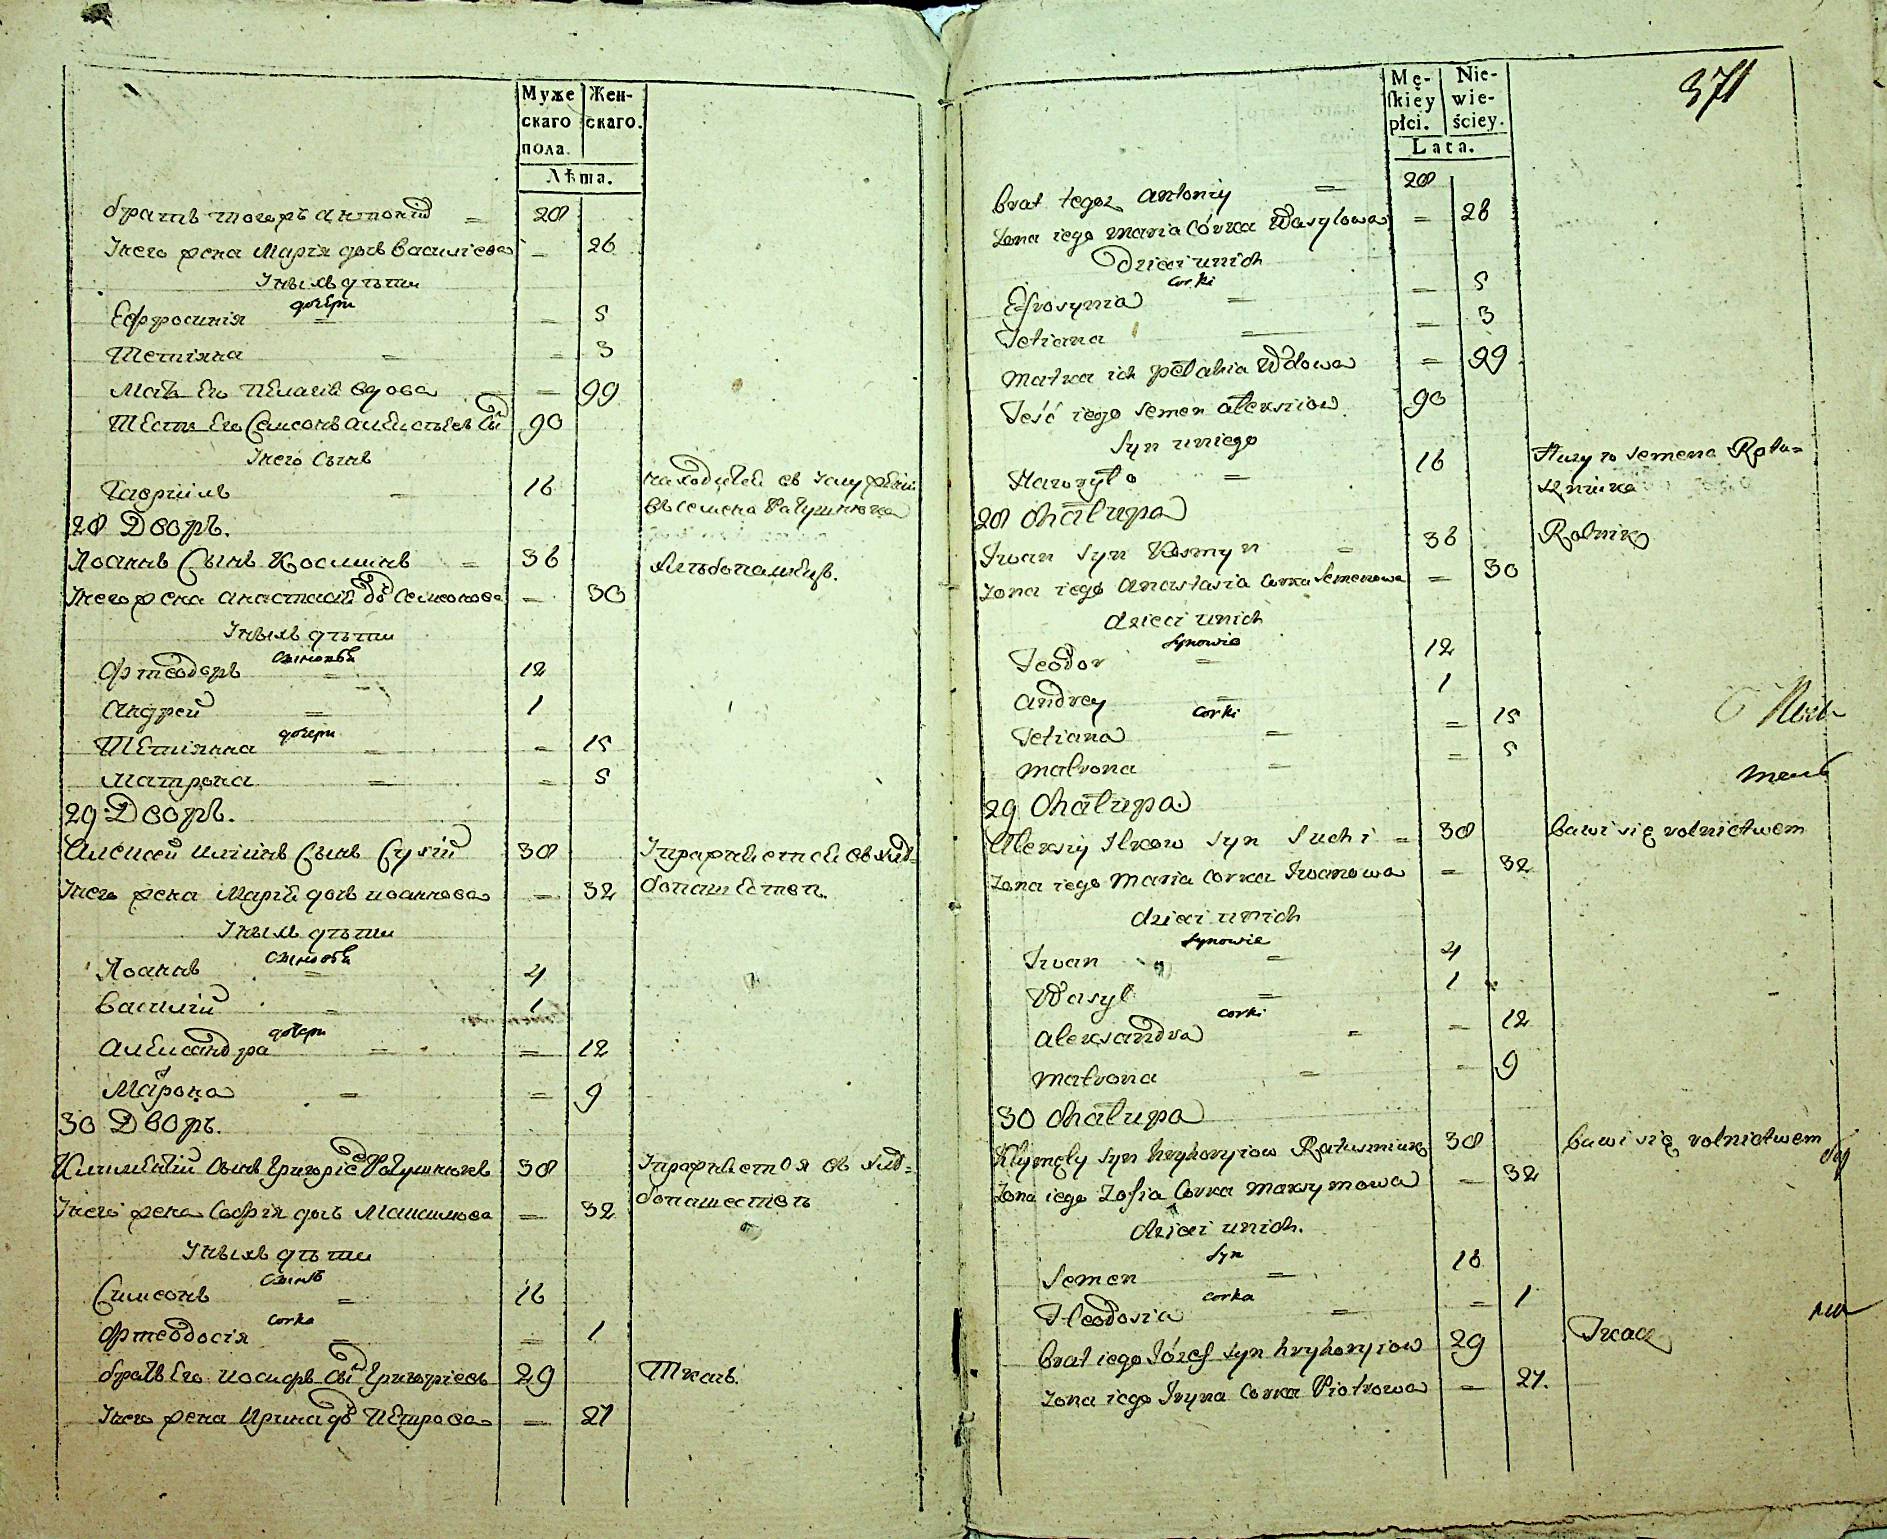 Муже
скаго
пола.
Жен-
скаго.
Лѣта.
братъ тогожъ антоній = 28
Унего жена Марія дочь Василіева — 26
Унихъ дѣти
дочери
Ефросинія = — 5
Тетіяна = — 3
Мать Его Пелагія вдова — 99
Тесть Его Семіонъ Алексѣевъ Сынъ 90
Унего Сынъ
Гавріилъ = 16 находится въ услуженіи
въ семена Ратушнюка
28 Дворъ.
Иоаннъ Сынъ Косминъ = 36 Хлѣбопашецъ.
Унего жена анастасія дочь Семионова — 30
Унихъ дѣти
Сыновья
Фтеодоръ = 12
Андрей = 1
дочери
Тетіянна = — 15
Матрона = — 5
29 Дворъ.
Алексей Иліинъ Сынъ Сухій 38 Упражняется въ хлѣ-
Унего жена Марія дочь иоаннова — 32 бопашестве.
Унихъ дѣти
Сыновья
Иоаннъ = 4
Василій = 1
дочери
Александра = — 12
Матрона = — 9
30 Дворъ.
Климентій Сынъ Григоріевъ Ратушнюкъ 38 Упражнется въ хлѣ-
Унего жена Софія дочь Максимова — 32 бопашествѣ
Унихъ дѣти
Сынъ
Симеонъ = 16
Corka
Фтеодосія = = 1
братъ Его иосифъ Сынъ Григоріевъ 29 Ткачъ.
Унего жена Ирина дочь Петрова — 27
371
Mę-
skiey
płci.
Nie-
wie-
ściey.
Lata.
brat tegoż Antoniy = 28
Żona iego Maria Córka Wasylowa — 26
Dzieci unich
Corki
Efrosynia = — 5
Tetiana = — 3
Matka ich Pelahia Wdowa = 99
Teść iego Semen Alexiiow 90
Syn uniego
Hawryło = 16 Służy u Semena Ratu-
sznika
28 Chałupa
Iwan syn Kosmyn = 36 Rolnik
Żona iego Anastasia Corka Semenowa — 30
dzieci unich
Synowie
Teodor = 12
Andrey = 1
Corki
Tetiana = = 15
Matrona = = 5
29 Chałupa
Alexiy Ilkow syn Suchi = 38 bawi się rolnictwem
Żona iego Maria Corka Iwanowa — 32
dzieci unich
Synowie
Iwan = 4
Wasyl = 1
corki
Alexandra = — 12
Matrona = — 9
30 Chałupa
Klymęty syn Hryhoryiow Ratuszniuk 38 bawi się rolnictwem
Żona iego Zofia Corka Maxymowa — 32
dzieci unich.
Syn
Semen = 16
corka
Fteodosia = = 1
brat iego Józef syn Hryhoryiow 29 Tkacz
Żona iego Iryna Corka Piotrowa — 27.